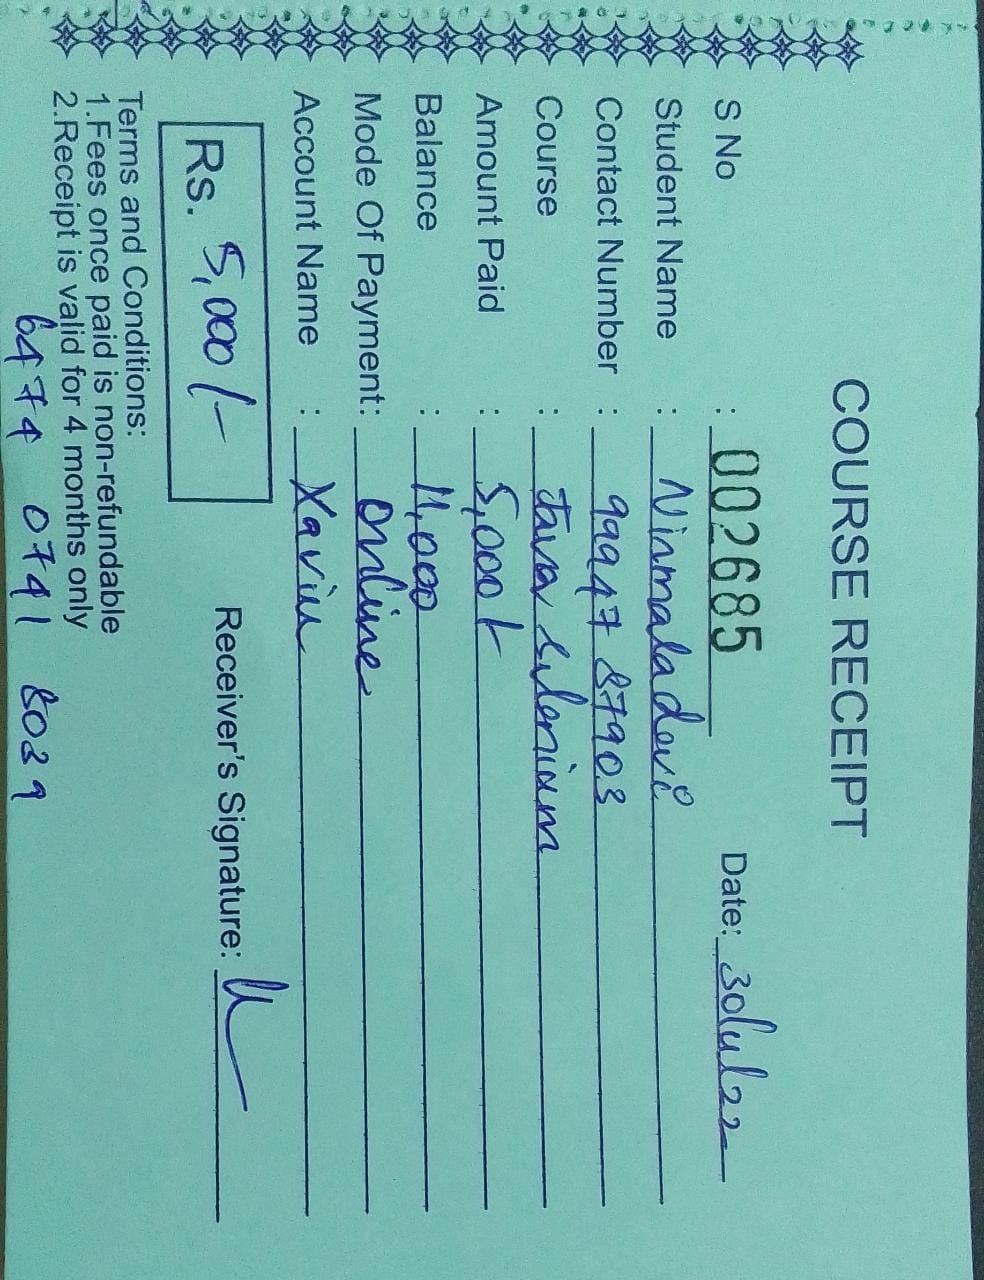 COURSE RECEIPT
S No : 002685 Date: 30/4/22
Student Name : Nirmaladevi
Contact Number : 99947 87903
Course : Java Selenium
Amount Paid : 5,000/-
Balance : 11,000
Mode Of Payment: Online
Account Name : Xavier
Rs. 5,000/- Receiver's Signature:
Terms and Conditions:
1.Fees once paid is non-refundable
2.Receipt is valid for 4 months only
6474 0741 8029